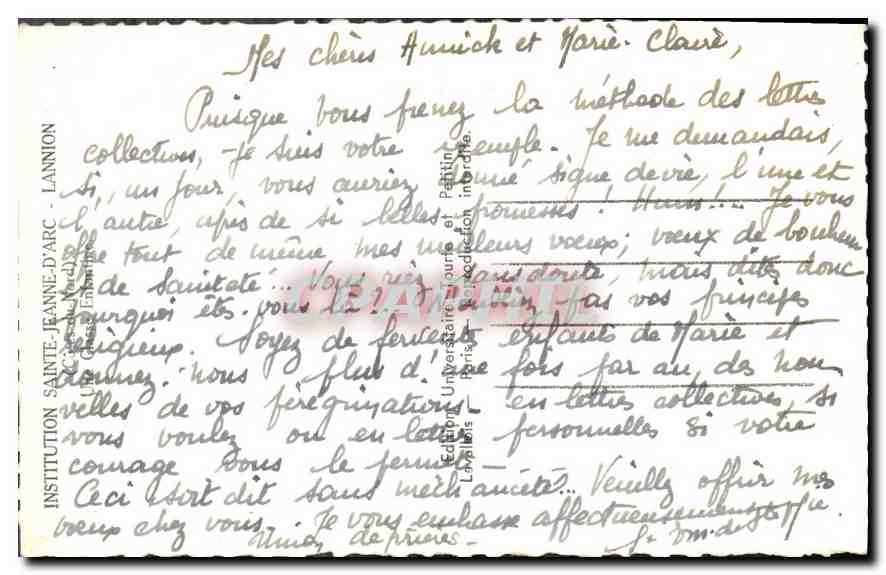 Mes chères Annick et Marie-Claire,
Puisque vous prenez la méthode des lettres
collectives, je suis votre exemple. Je me demandais,
si, un jour, vous auriez donné signe de vie, l'une et
l'autre, après de si belles promesses ! Hum !... Je vous
offre tout de même mes meilleurs vœux ; vœux de bonheur
de sainteté... Vous riez sans doute, mais dites donc
pourquoi êtes-vous là ?... N'oubliez pas vos principes
religieux. Soyez de ferventes enfants de Marie et
donnez-nous plus d'une fois par an, des nou
velles de vos pérégrinations en lettres collectives, si
vous voulez ou en lettres personnelles si votre
courage vous le permet -
Ceci soit dit sans méchanceté... Veuillez offrir mes
vœux chez vous. Je vous embrasse affectueusement
Union de prières -
INSTITUTION SAINTE-JEANNE-D'ARC - LANNION
(Côtes-du-Nord)
Une Classe Enfantine
Editions Universitaire Tourte et Petitin
Levallois - Paris - reproduction interdite.
CPARAMA